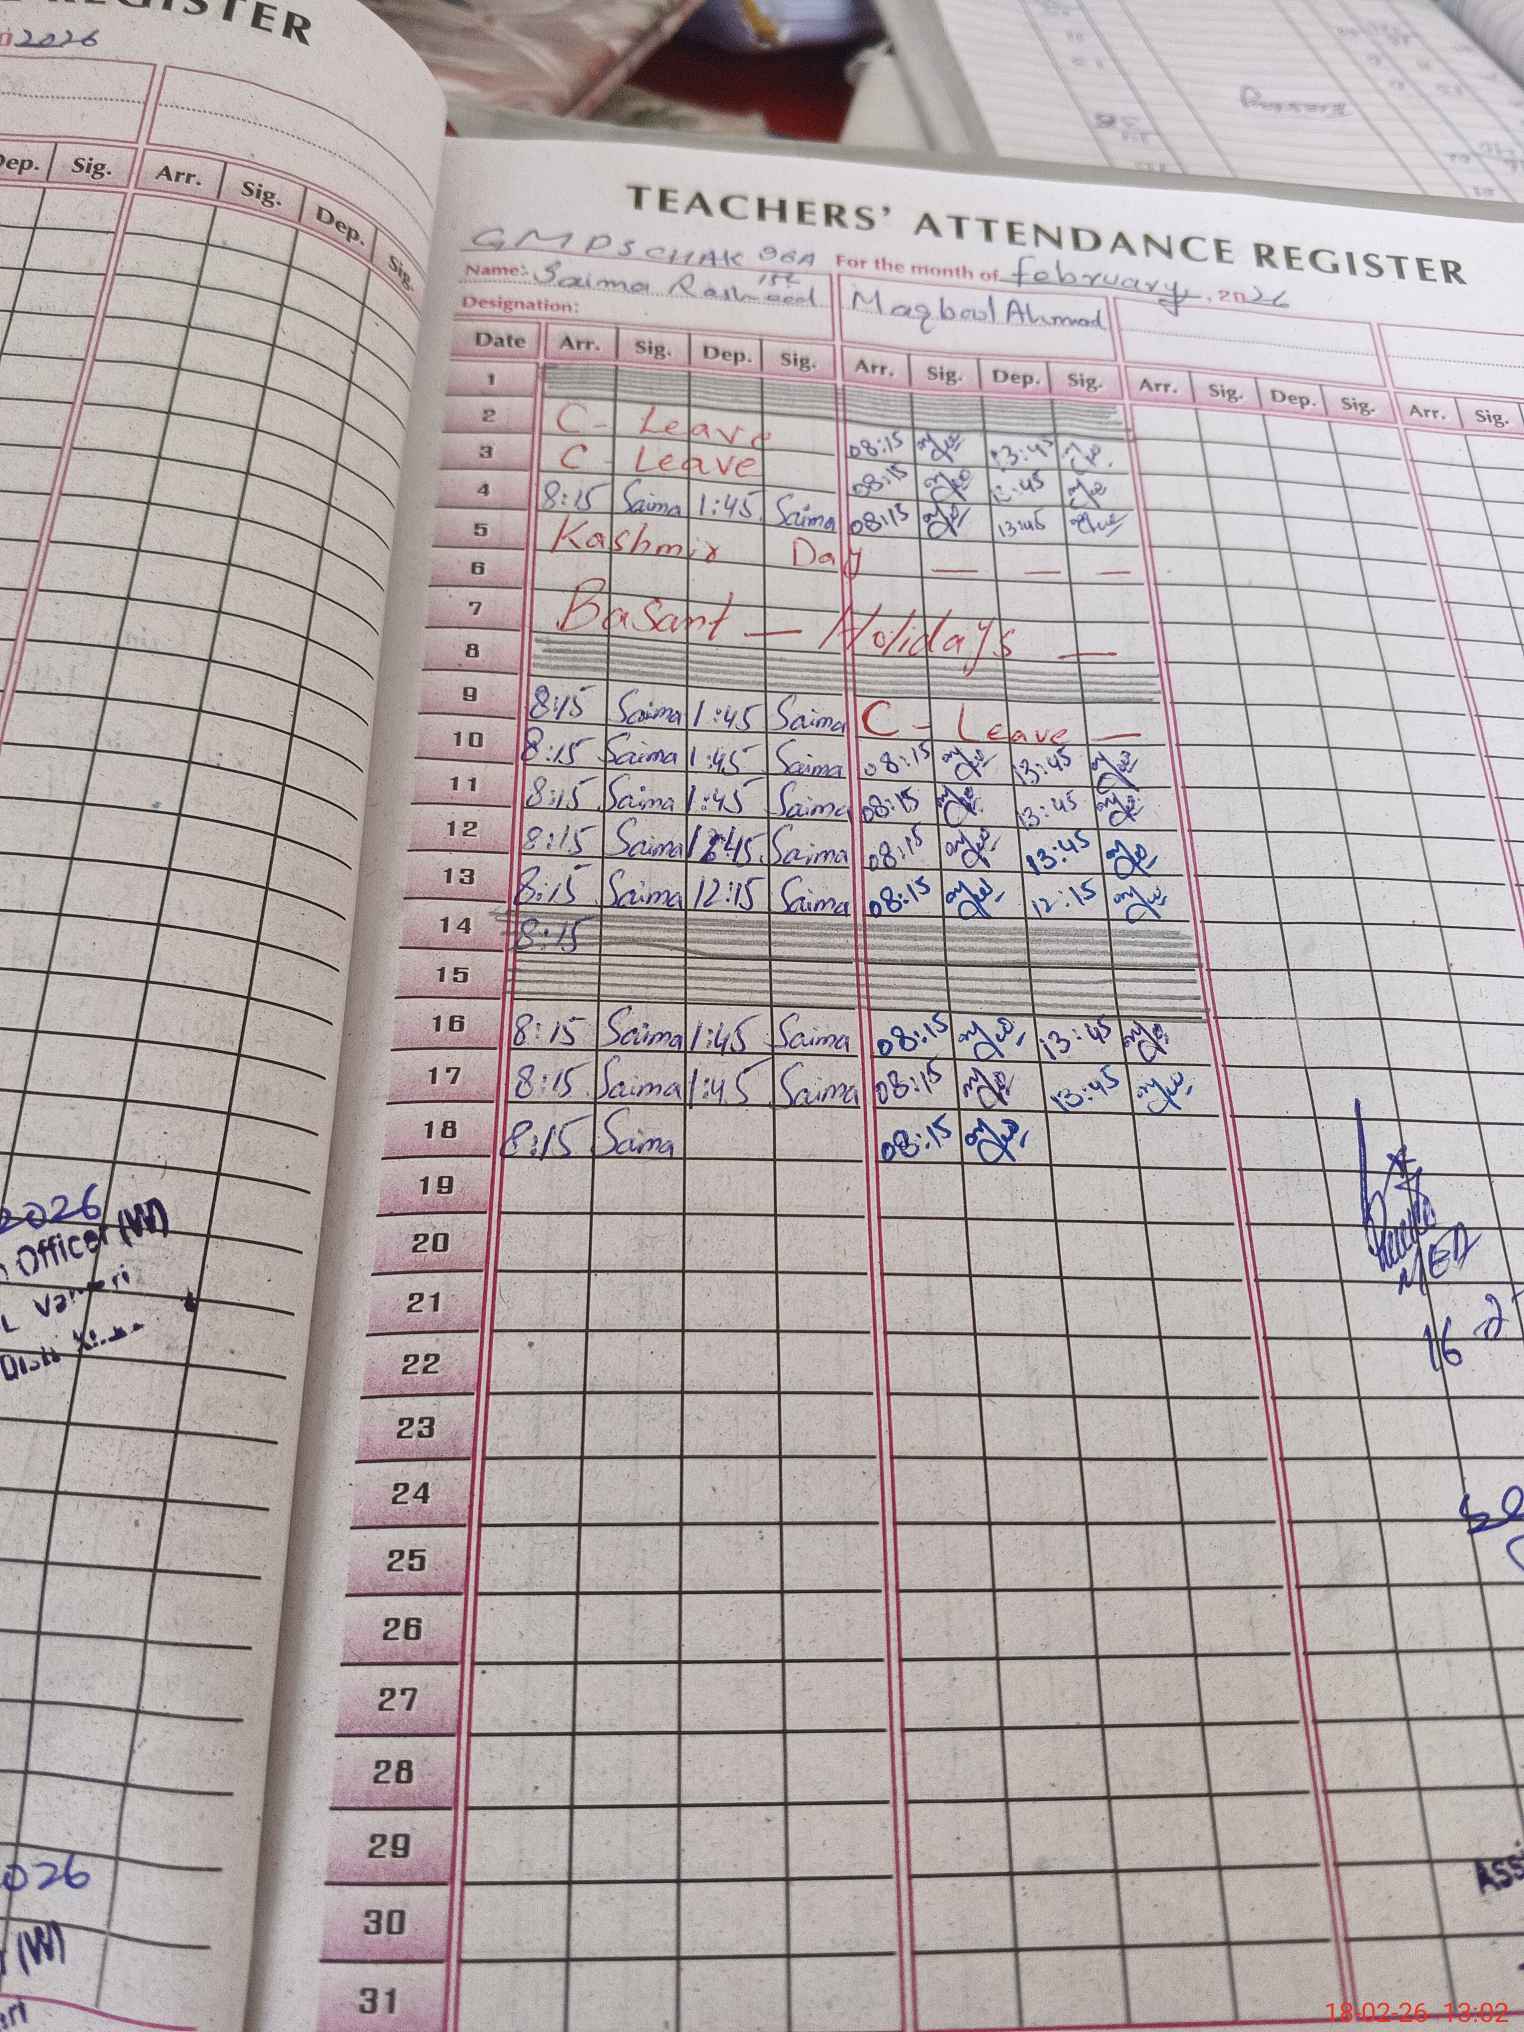 REGISTER
2026
Dep. Sig. Arr. Sig. Dep. Sig.
2026
Officer (W)
026
(W)
TEACHERS' ATTENDANCE REGISTER
GMPS CHAK 96A For the month of February, 2026
Name: Saima Rasheed Maqbool Ahmad
Designation:
Date Arr. Sig. Dep. Sig. Arr. Sig. Dep. Sig. Arr. Sig. Dep. Sig. Arr. Sig.
1
2 C - Leave 08:15 13:45
3 C - Leave 08:15 13:45
4 8:15 Saima 1:45 Saima 08:15 13:45
5 Kashmir Day — — —
6
7 Basant — Holidays —
8
9 8:15 Saima 1:45 Saima C - Leave —
10 8:15 Saima 1:45 Saima 08:15 13:45
11 8:15 Saima 1:45 Saima 08:15 13:45
12 8:15 Saima 1:45 Saima 08:15 13:45
13 8:15 Saima 12:15 Saima 08:15 12:15
14 8:15
15
16 8:15 Saima 1:45 Saima 08:15 13:45
17 8:15 Saima 1:45 Saima 08:15 13:45
18 8:15 Saima 08:15
19
20
21
22
23
24
25
26
27
28
29
30
31
16-2
18-02-26 13:02